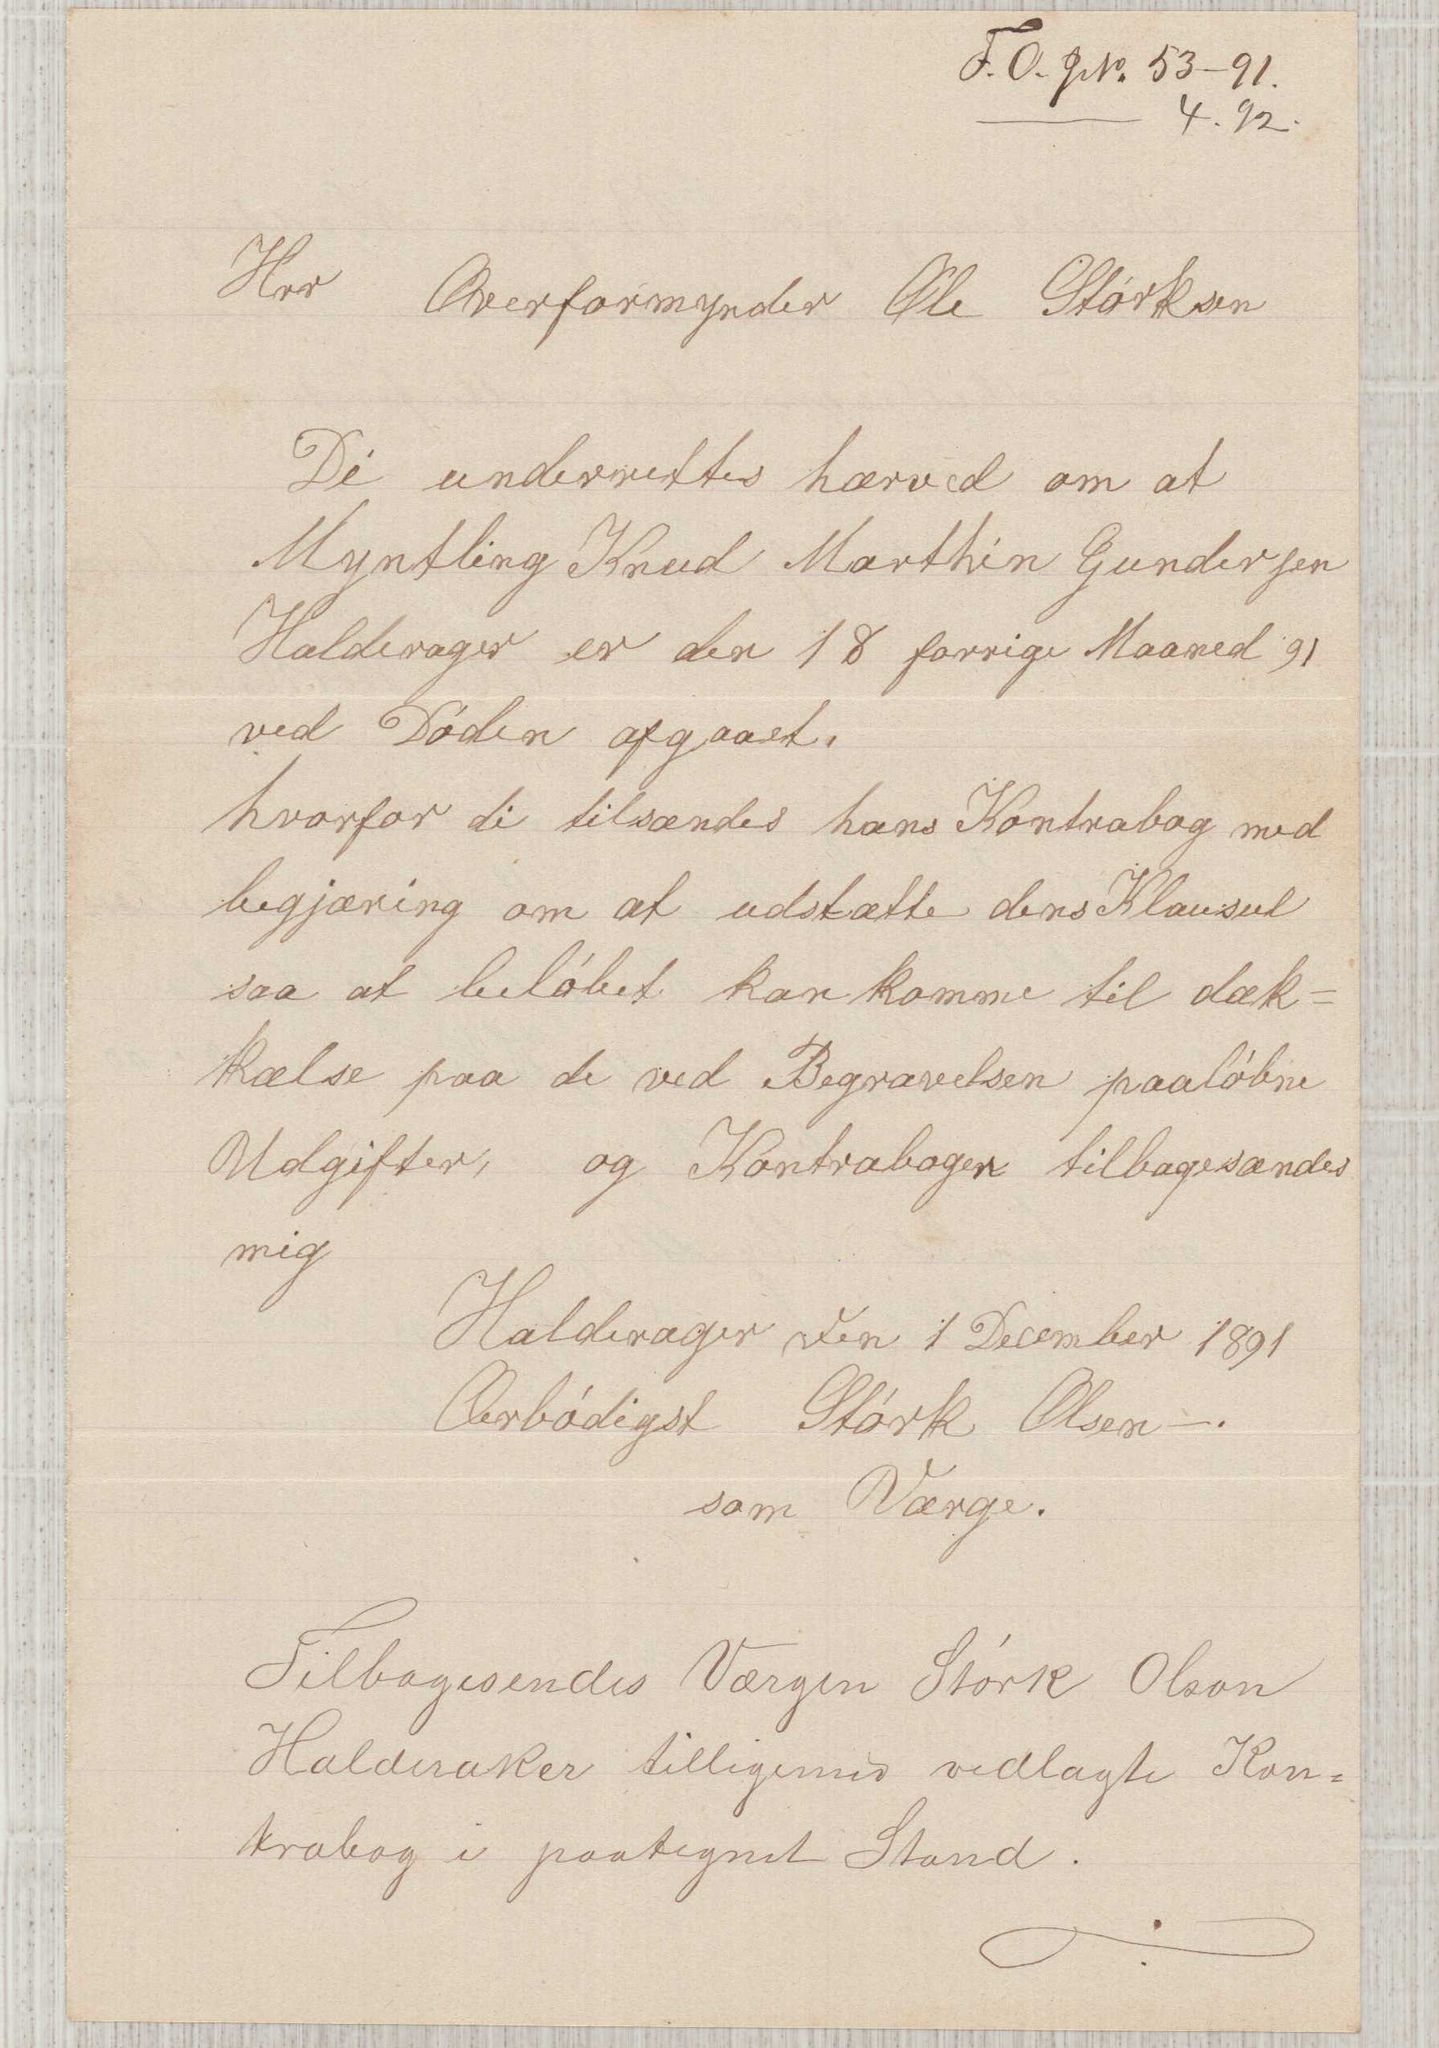 F. O. JNo. 53-91.
4. 92.
Hrr Overformynder Ole Stórksen
Di underrettes hærved om at
Myntling Knud Marthin Gundersen
Halderager er den 18 forrige Maaned 91
ved Dóden afgaaet.
hvorfor di tilsændes hans Kontrabog med
begjæring om at udstætte dens Klausul
saa at belóbet kan komme til dæk=
kælse paa de ved Begravelsen paalóbne
Udgifter, og Kontrabogen tilbagesændes
mig
Halderager den 1 December 1891
Ærbódigst Stórk Olsen -.
som Værge.
Tilbagesendes Værgen Stórk Olson
Halderaker tilligemed vedlagte Kon=
trabog i paategnet Stand.